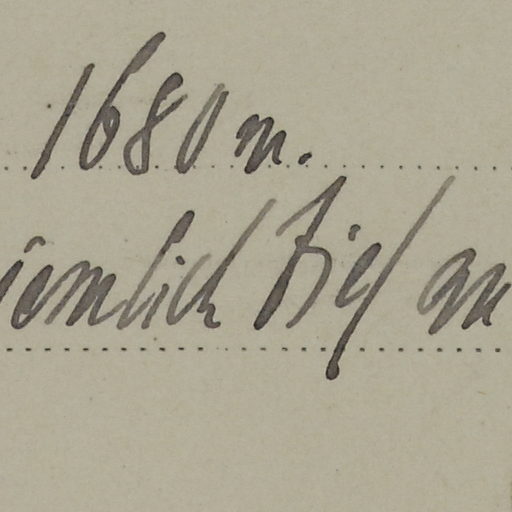 1680 m.
iemlich tief an